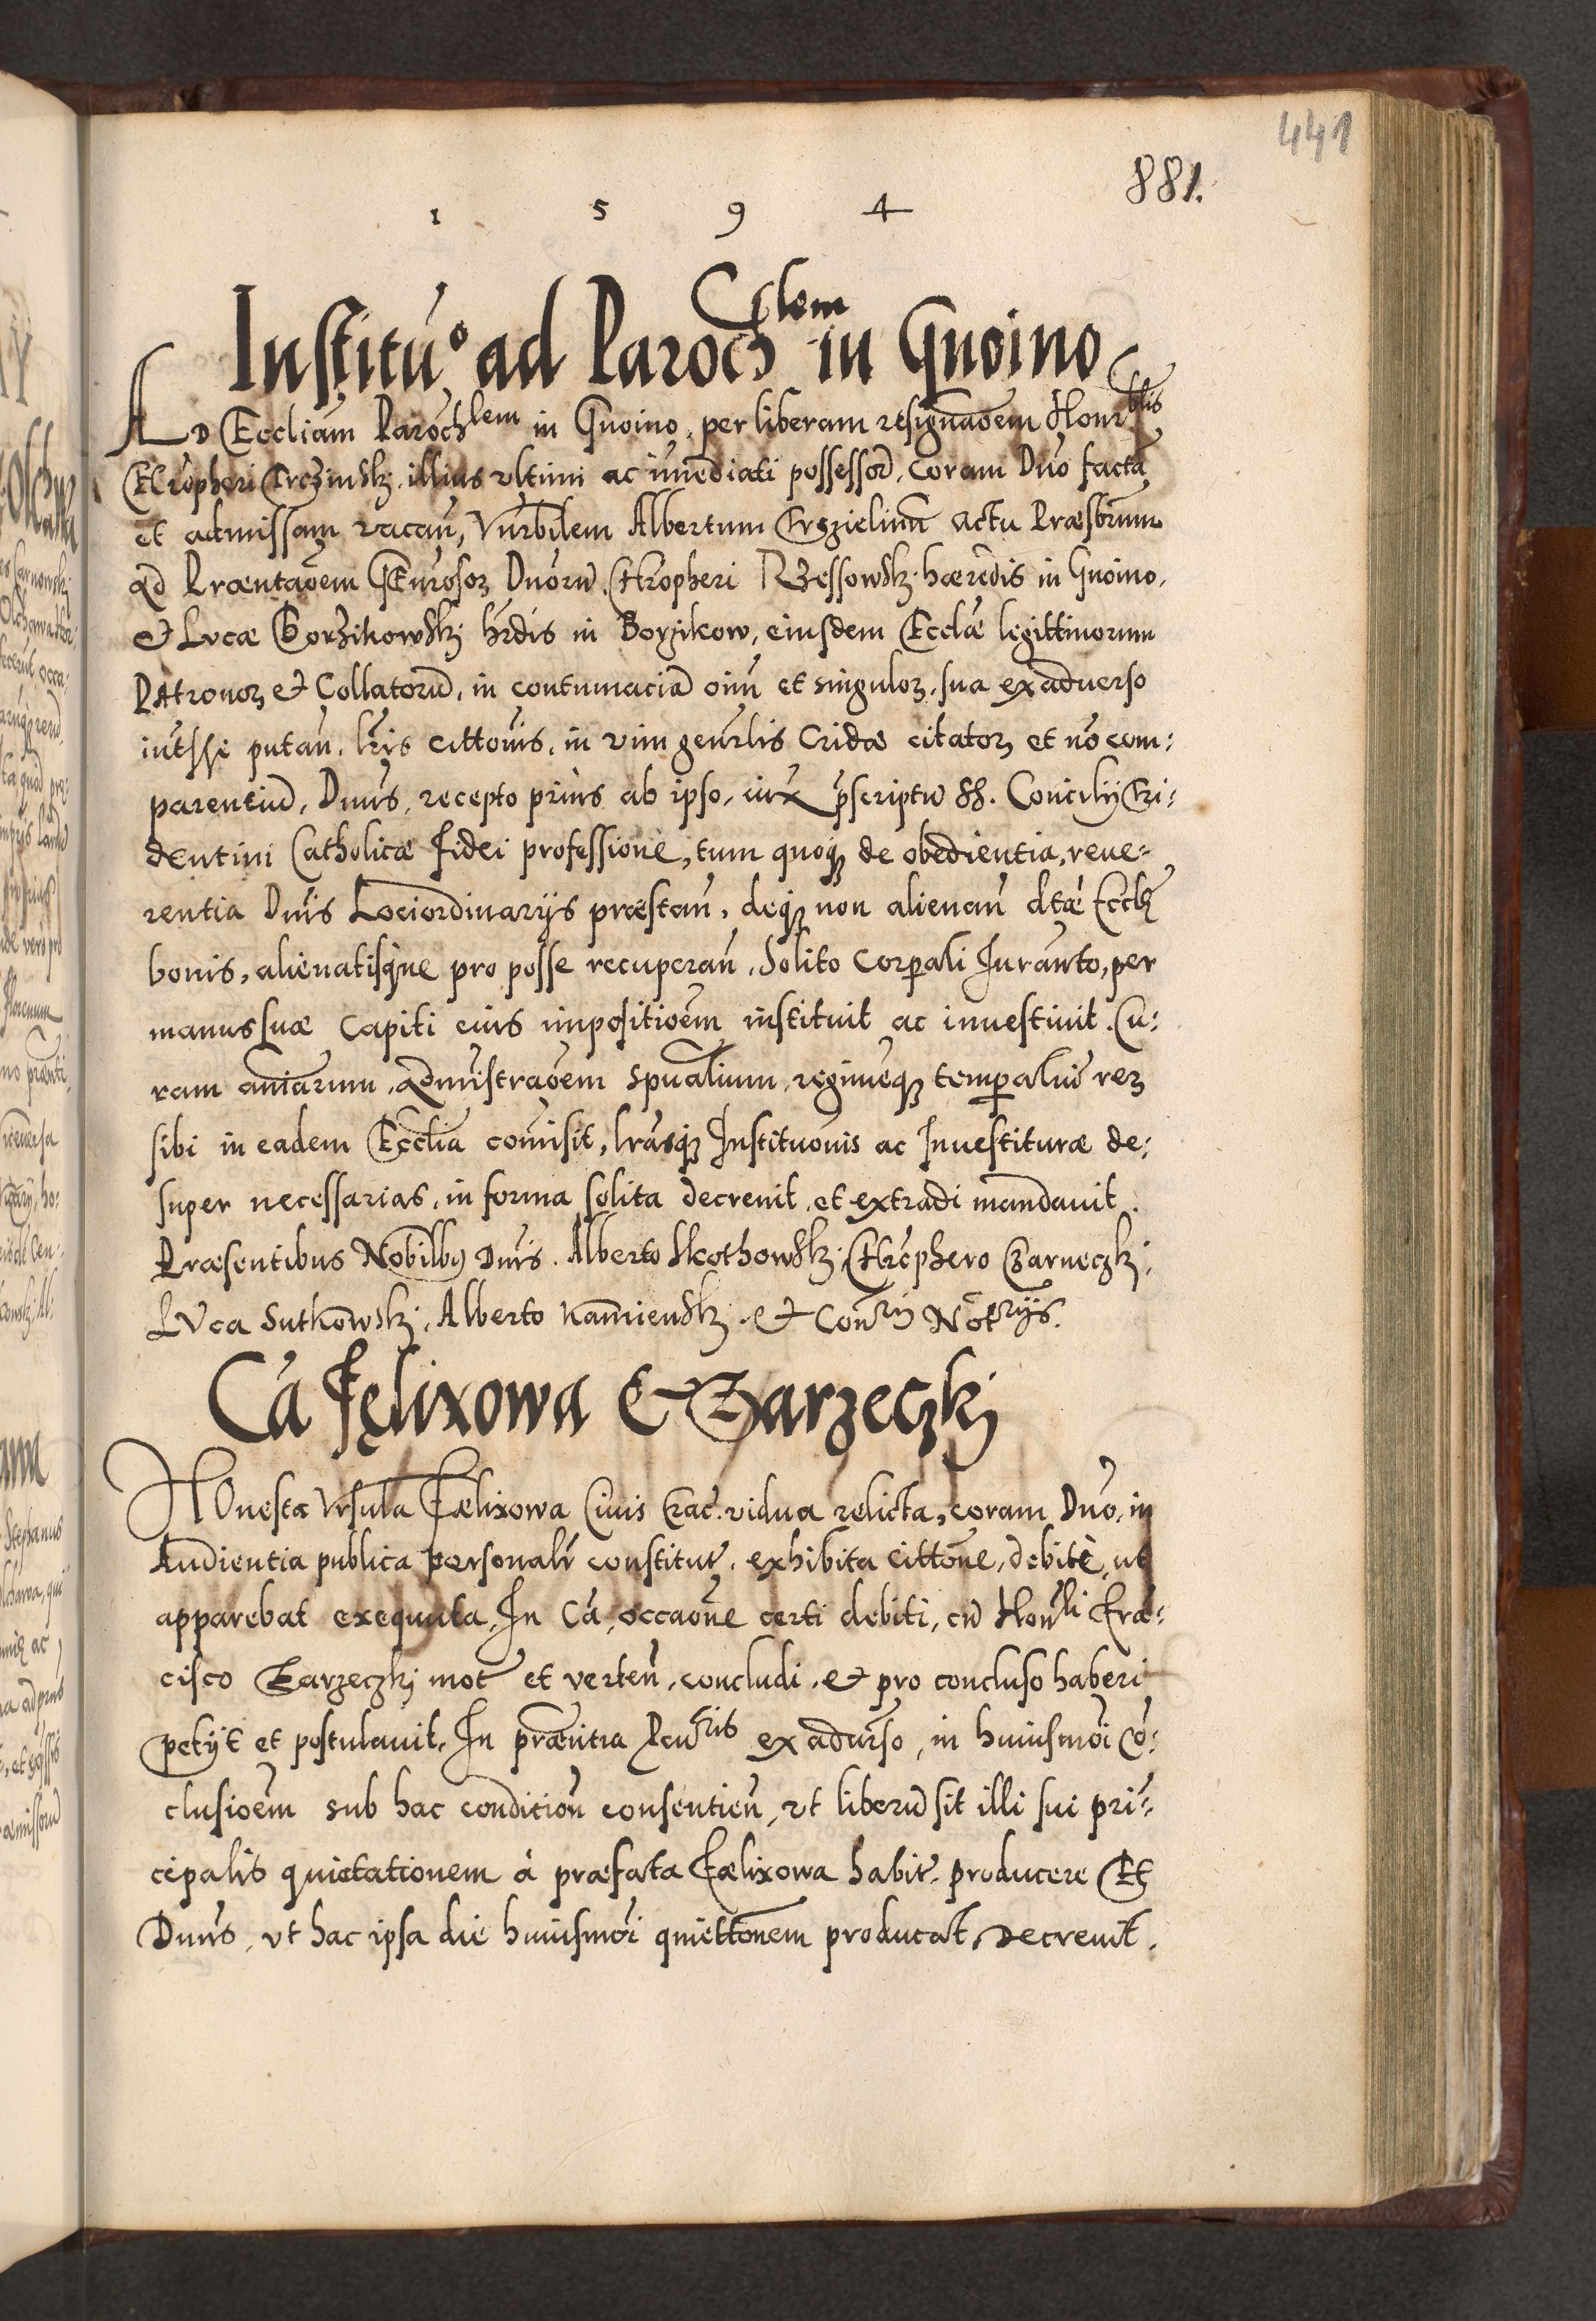 441
881.
1 5 9 4
Institu° ad Parochlem in Gnoino
AD Eccliam Parochlem in Gnoino, per liberam resignaoem Honrblis
Chropheri illius ultimi ac imediati possessor. coram Dno facta
et admissam vacan, Vnrbilem Albertum actu Præsbrum
ad Præntaoem GEnrosor Dnoru. Chropheri Rzessowskj hæredis in Gnoino,
et Lucæ Gorzikowskj hrdis in Borzikow, eiusdem Ecclæ legittimorum
PAtronor et Collatoru, in contumacia oim et singulor, sua ex aduerso
intesse putan, lris cittonis, in vim genrlis Cridæ citator et no com:
parentiu, Dnus, recepto prius ab ipso, iux pscriptu SS. Concilij Tri:
dentini Catholicæ fidei professione, tum quoq; de obedientia, reue-
rentia Dnis Lociordinarijs præstan, deq; non alienan dtæ Eccliæ
bonis, alienatisque pro posse recuperan, Solito Corporali Juranto, per
manus suæ Capiti eius impositioem instituit ac inuestiuit. Cu:
ram aniarum, admistraoem spualium, regimeq; temporaliu rer
sibi in eadem Ecclia comisit, lrasq; Institutonis ac Inuestituræ de:
super necessarias, in forma solita decreuit, et extradi mandauit.
Præsentibus Nobilibus Dnis. Alberto Skothowskj, Chrophero Czarneczkj,
LVca Sutkowskj, Alberto Kamienskj et Conrij Notrijs.
Ca Fęlixowa et Zarzeczkj
HOnesta Vrsula Fælixowa Ciuis Crac. vidua relicta, coram Dno, in
Audientia publica personalr constitut. exhibita cittone, debite, ut
apparebat exequuta, In Ca, occaone certi debiti, cu Honrli Fra-
cisco Zarzeczkj mot et verten, concludi, et pro concluso haberi
petijt et postulauit, In præntia Pcuris ex aduerso, in huiusmoi Co-
clusioem sub hac condition consentien, ut liberu sit illi sui pri-
cipalis quietationem à præfata Fælixowa habit. producere Et
Dnus, ut hac ipsa die huiusmoi quiettonem producat, Decreuit.